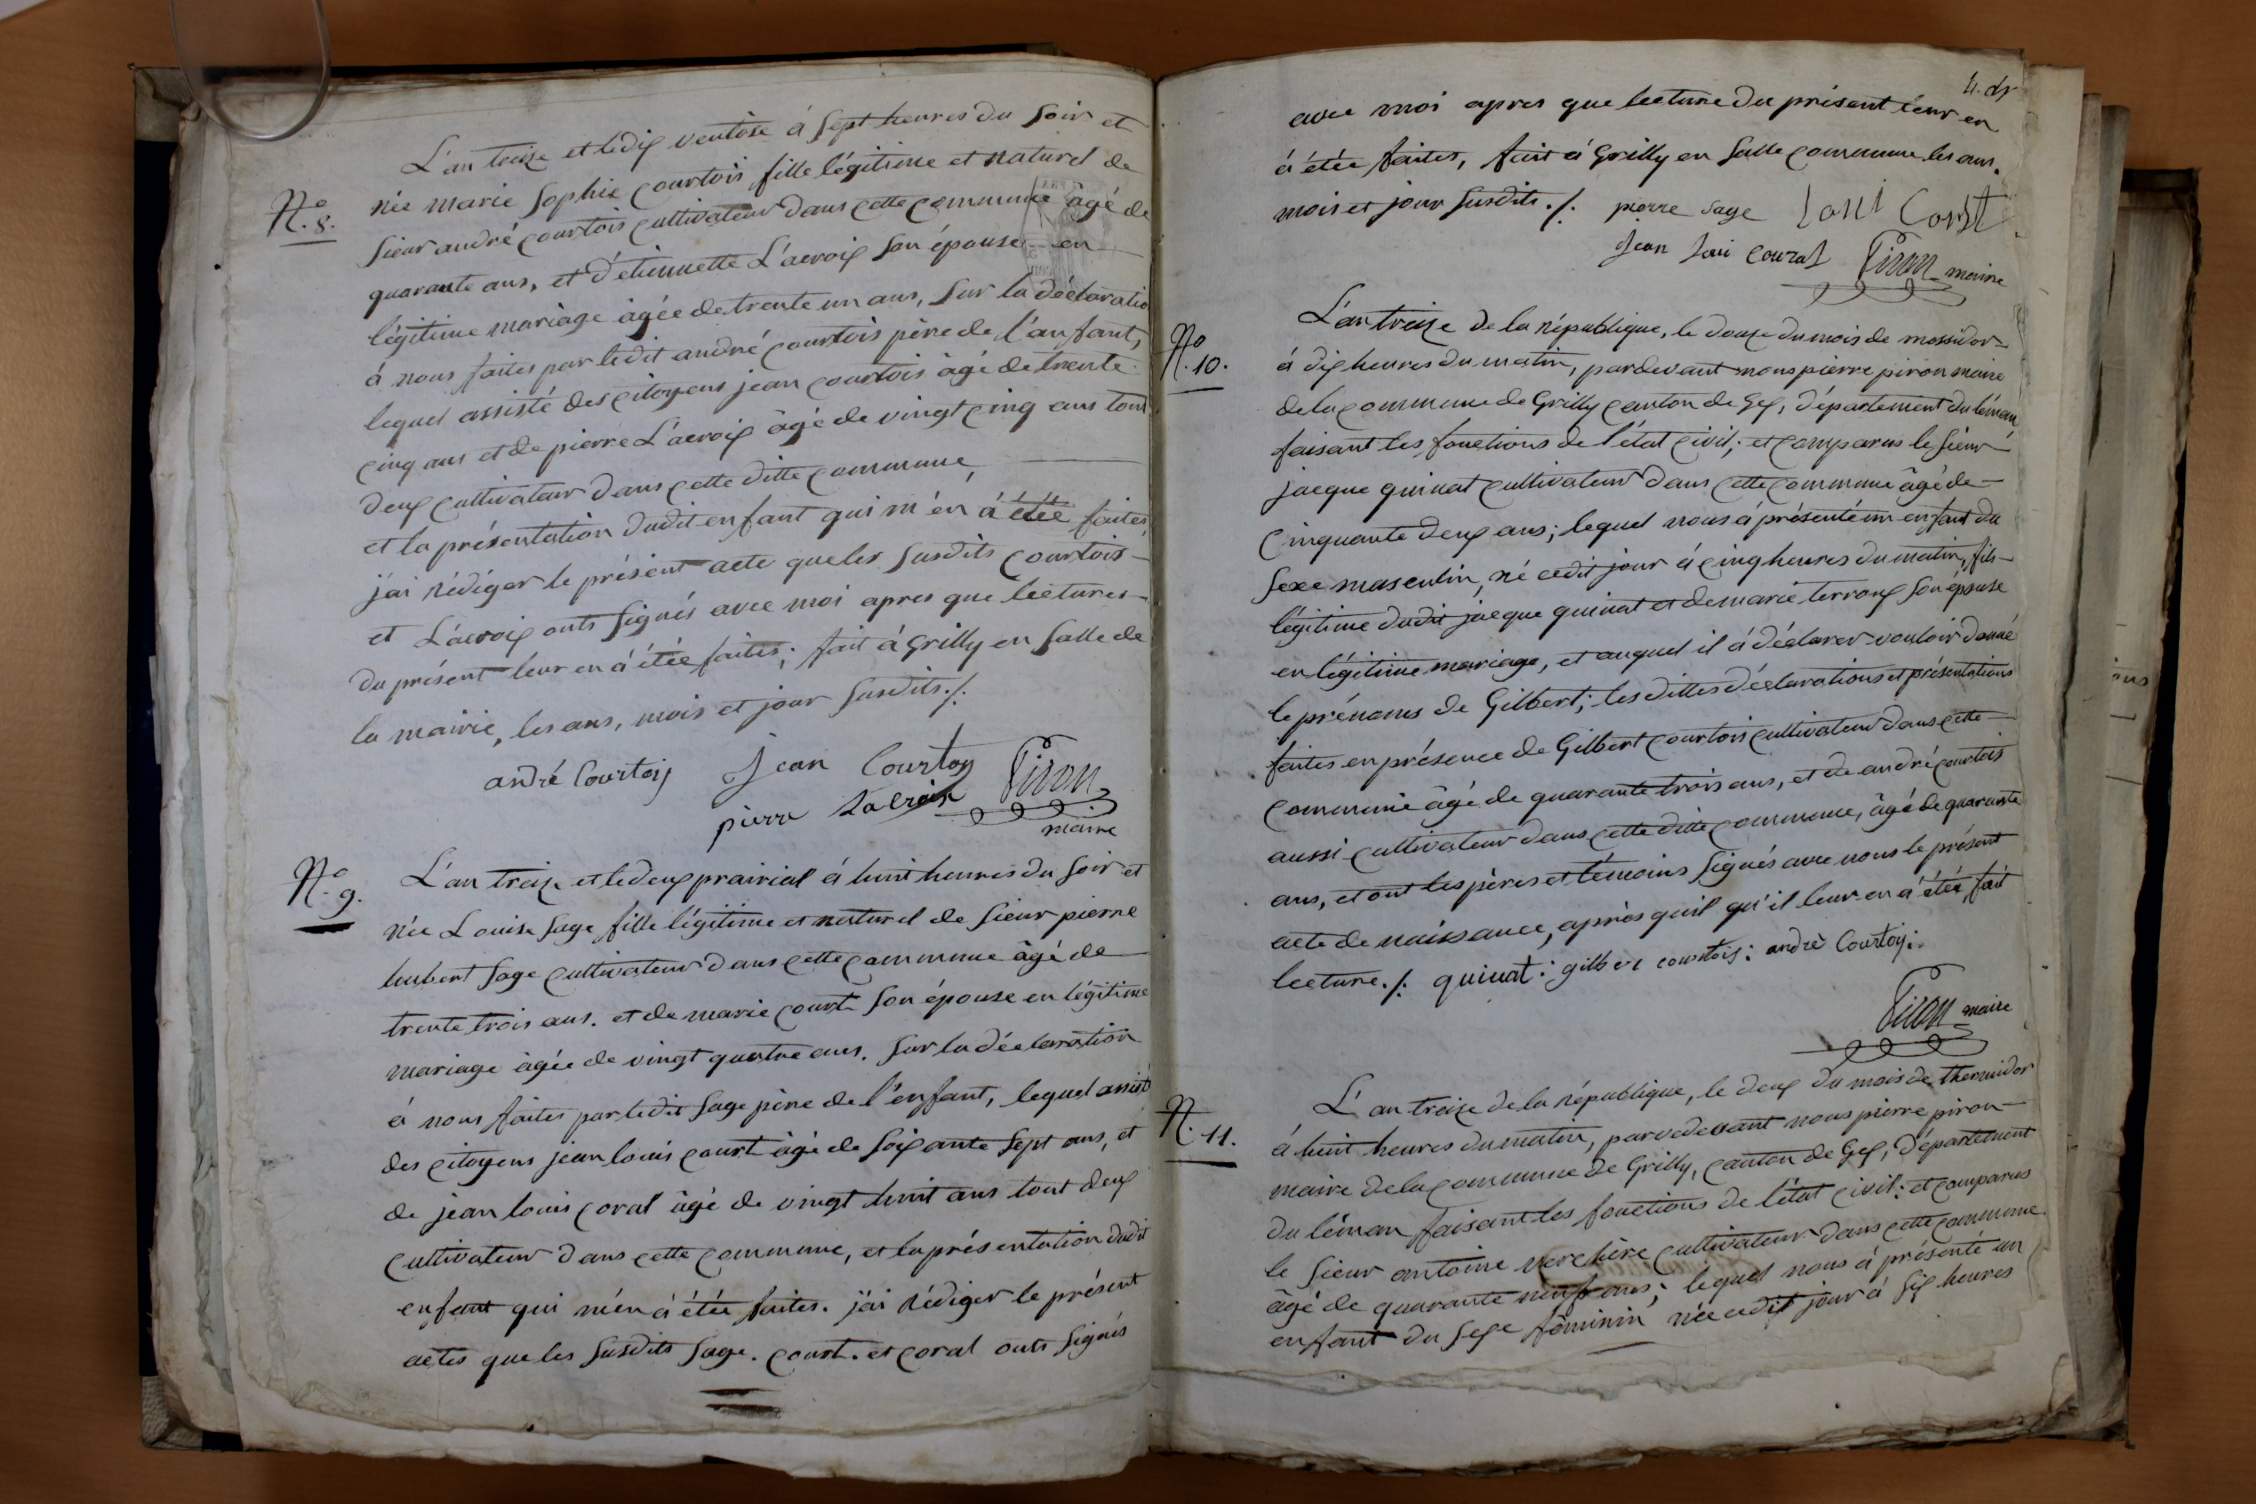 L'an treize et le dix ventose á sept heures du soir et
N.° 8. née marie Sophie Courtois fille légitime et naturel de
sieur andré Courtois cultivateur dans cette commune âgé de
quarante ans, et d'étiennette L'acroix son épouse en
légitime mariage âgée de trente un ans, sur la déclaratio
á nous faites par ledit andré Courtois père de l'anfant,
lequel assisté des citoyens jean Courtois âgé de trente
cinq ans et de pierre L'acroix âgé de vingt cinq ans tous
deux cultivateur dans cette ditte commune,
et la présentation dudit enfant qui m'én á étée faites,
j'ai rédiger le présent acte que les susdits Courtois
et L'acroix onts signés avec moi apres que lectures
du présent leur en á étée faites; fait á Grilly en salle de
la mairie, les ans, mois et jour susdits./.
andré Courtois Jean Courtoy
pierre Lacroix Piron
maire
N.° 9. L'an treize et le deux prairial á huit heures du soir et
née Louise Sage fille légitime et naturel de sieur pierre
hubert Sage cultivateur dans cette commune âgé de
trente trois ans. et de marie Court son épouse en légitime
mariage âgée de vingt quatre ans. sur la déclaration
á nous faites par ledit Sage père de l'enfant, lequel assisté
des citoyens jean louis Court âgé de soixante sept ans, et
de jean louis Coral âgé de vingt huit ans tout deux
cultivateur dans cette commune, et la présentation dudit
enfant qui m'én á étée faites. j'ai rédiger le présent
actes que les susdits Sage. Court. et Coral onts signés
avec moi apres que lecture du présent leur en
á étée faites, fait á Grilly en salle commune les ans.
mois et jour susdits./. pierre Sage
Piron maire
L'an treize de la république, le douze du mois de messidor
N.° 10. á dix heures du matin, pardevant nous pierre piron maire
de la commune de Grilly canton de Gex, département du léman
faisant les fonctions de l'état civil; et comparus le sieur
jacque quinat cultivateur dans cette commune âgé de
cinquante deux ans; lequel nous á présenté un enfant du
sexe masculin, né cedit jour á cinq heures du matin, fils
légitime dudit jacque quinat et de marie terroux son épouse
en légitime mariage, et auquel il á déclarer vouloir donné
le prénoms de Gilbert; les dittes déclarations et présentations
faites en présence de Gilbert Courtois cultivateur dans cette
commune âgé de quarante trois ans, et de andré Courtois
aussi cultivateur dans cette ditte commune, âgé de quarante
ans, et ont les pères et témoins signés avec nous le présent
acte de naissance, après quil qu'il leur en á étée fait
lecture./. quinat: gilber courtois: andrè Courtoy:.
Piron maire
L'an treize de la république, le deux du mois de thermidor
N. 11. á huit heures du matin, parvedevant nous pierre piron
maire de la commune de Grilly, canton de Gex, département
du léman faisant les fonctions de l'état civil; et comparus
le sieur antoine verchère cultivateur dans cette commune
âgé de quarante neuf ans; lequel nous á présenté un
enfant du sexe féminin née cedit jour á six heures